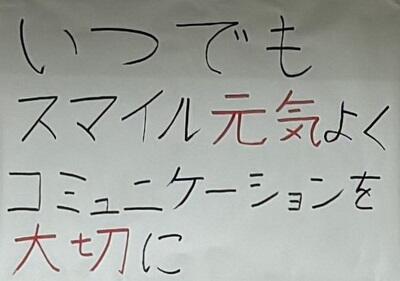 いつでも
スマイル元気よく
コミュニケーションを
大切に